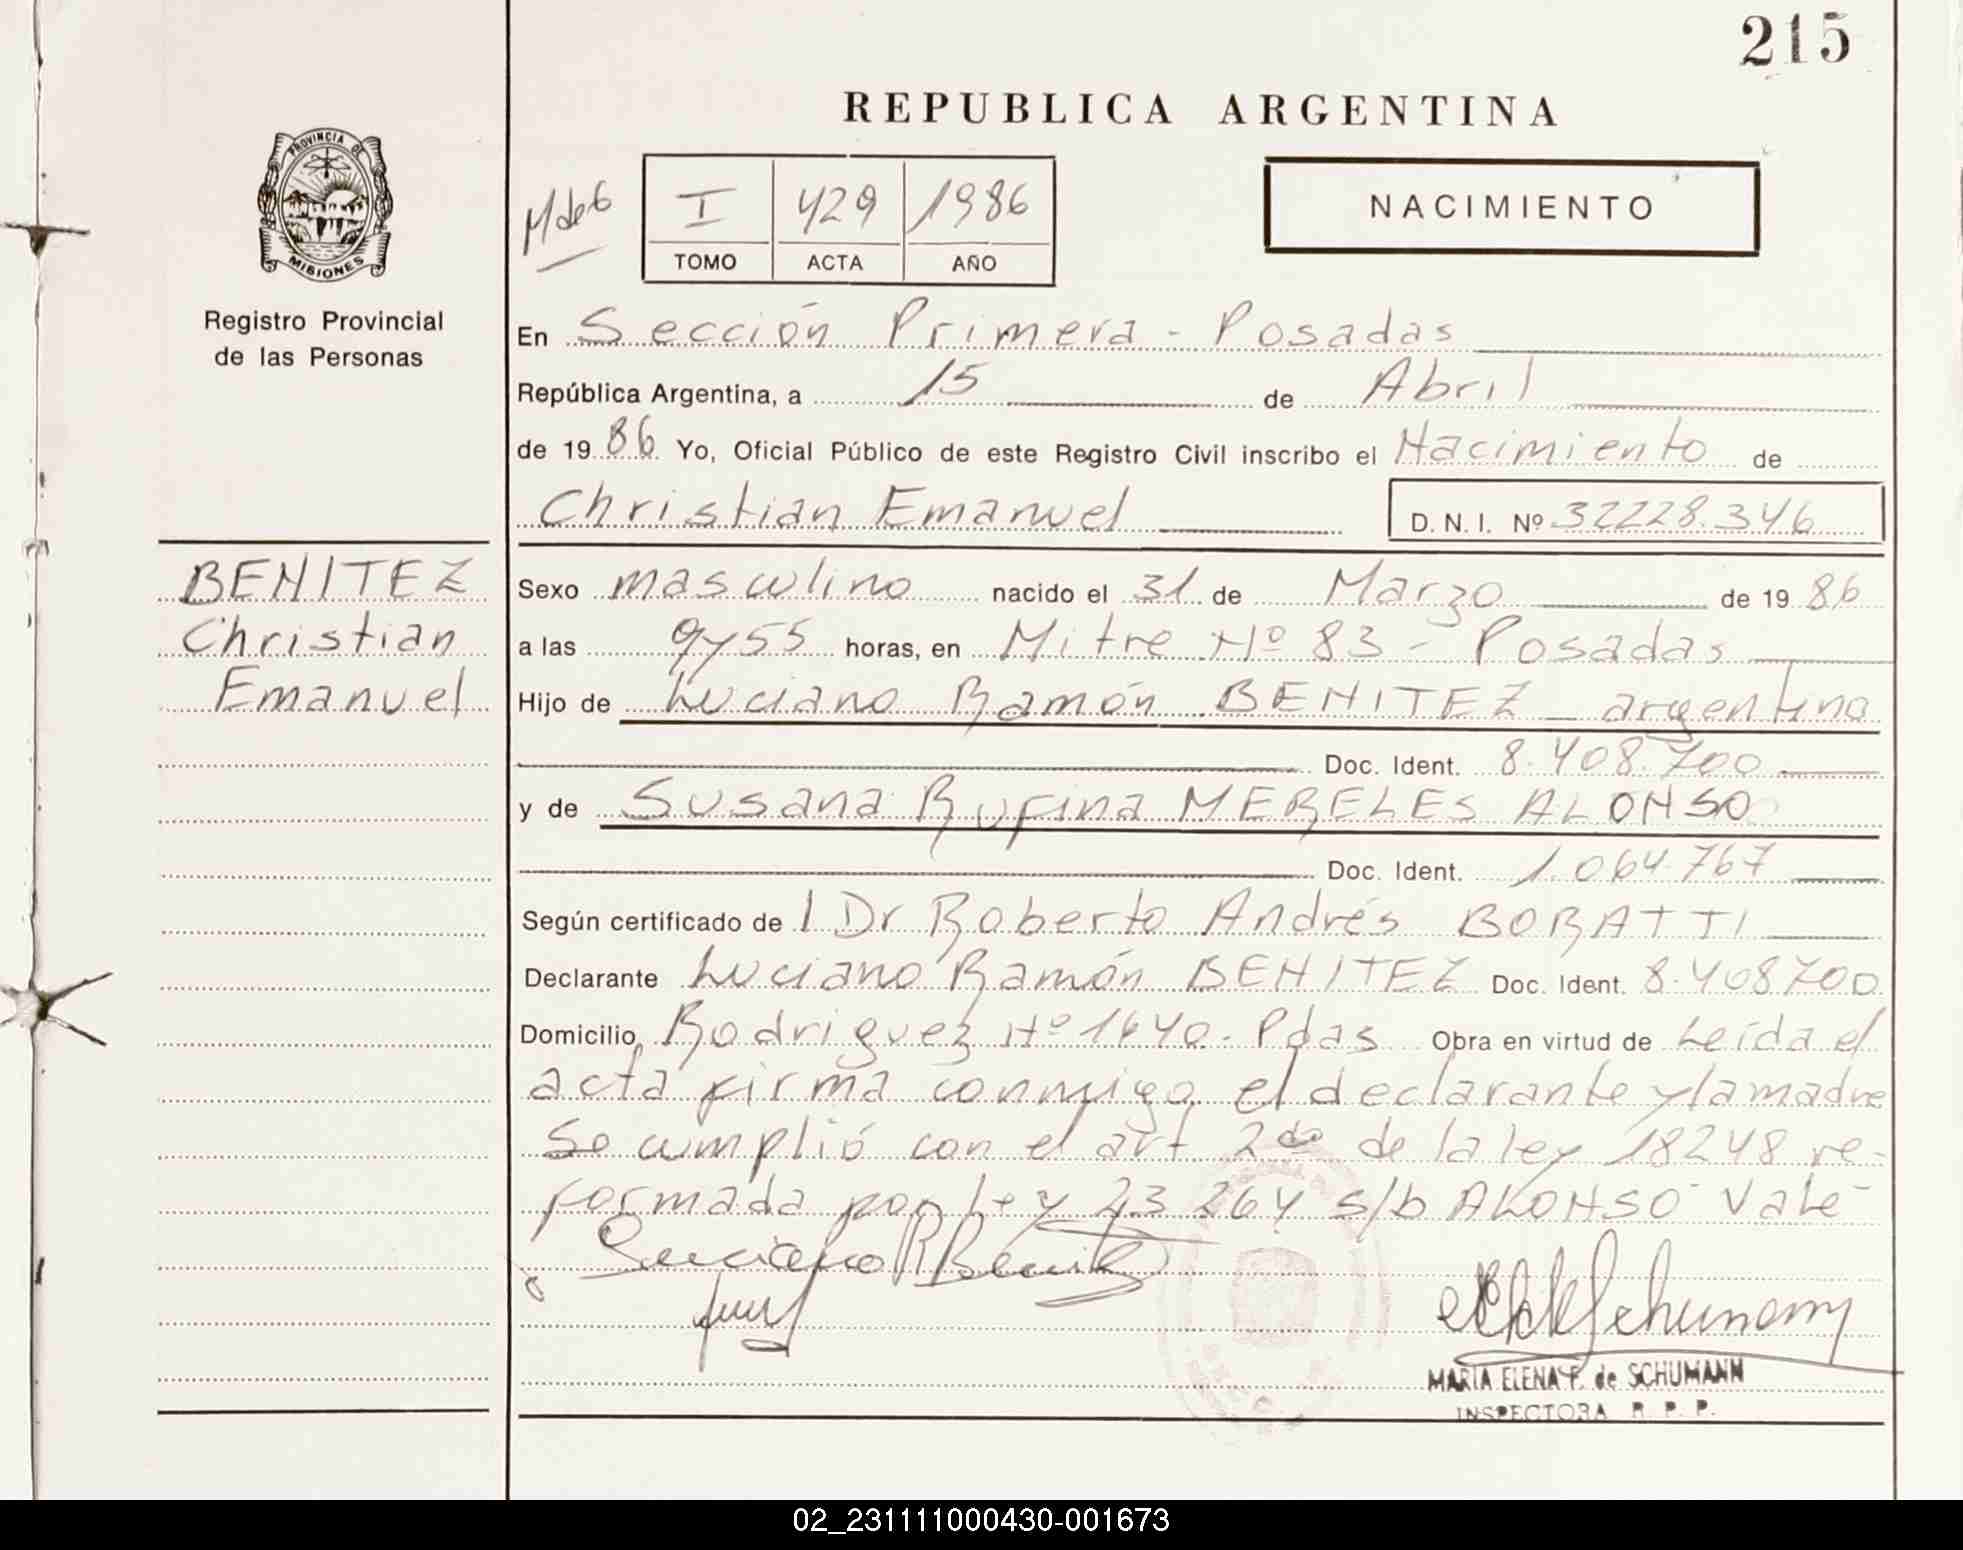 215
REPUBLICA ARGENTINA
PROVINCIA DE
MISIONES
Registro Provincial
de las Personas
I 429 1986
TOMO ACTA AÑO
NACIMIENTO
En Sección Primera - Posadas
República Argentina, a 15 de Abril
de 1986 Yo, Oficial Público de este Registro Civil inscribo el Nacimiento de
Christian Emanuel D. N. I. Nº 32228.346
BENITEZ
Christian
Emanuel
Sexo masculino nacido el 31 de Marzo de 1986
a las 9y55 horas, en Mitre Nº 83 - Posadas
Hijo de Luciano Ramón BENITEZ argentino
Doc. Ident. 8.408.700
y de Susana Rufina MERELES ALONSO
Doc. Ident. 1.064.767
Según certificado de l Dr Roberto Andrés BORATTI
Declarante Luciano Ramón BENITEZ Doc. Ident. 8.408700
Domicilio Rodriguez Nº 1640 - Pdas Obra en virtud de Leída el
acta firma conmigo el declarante y la madre
Se cumplió con el art 2do de la ley 18248 re-
formada por Ley 23 264 s/b ALONSO - Vale -
Luciano R Benitez
MARIA ELENA F. de SCHUMANN
INSPECTORA R. P. P.
02_231111000430-001673